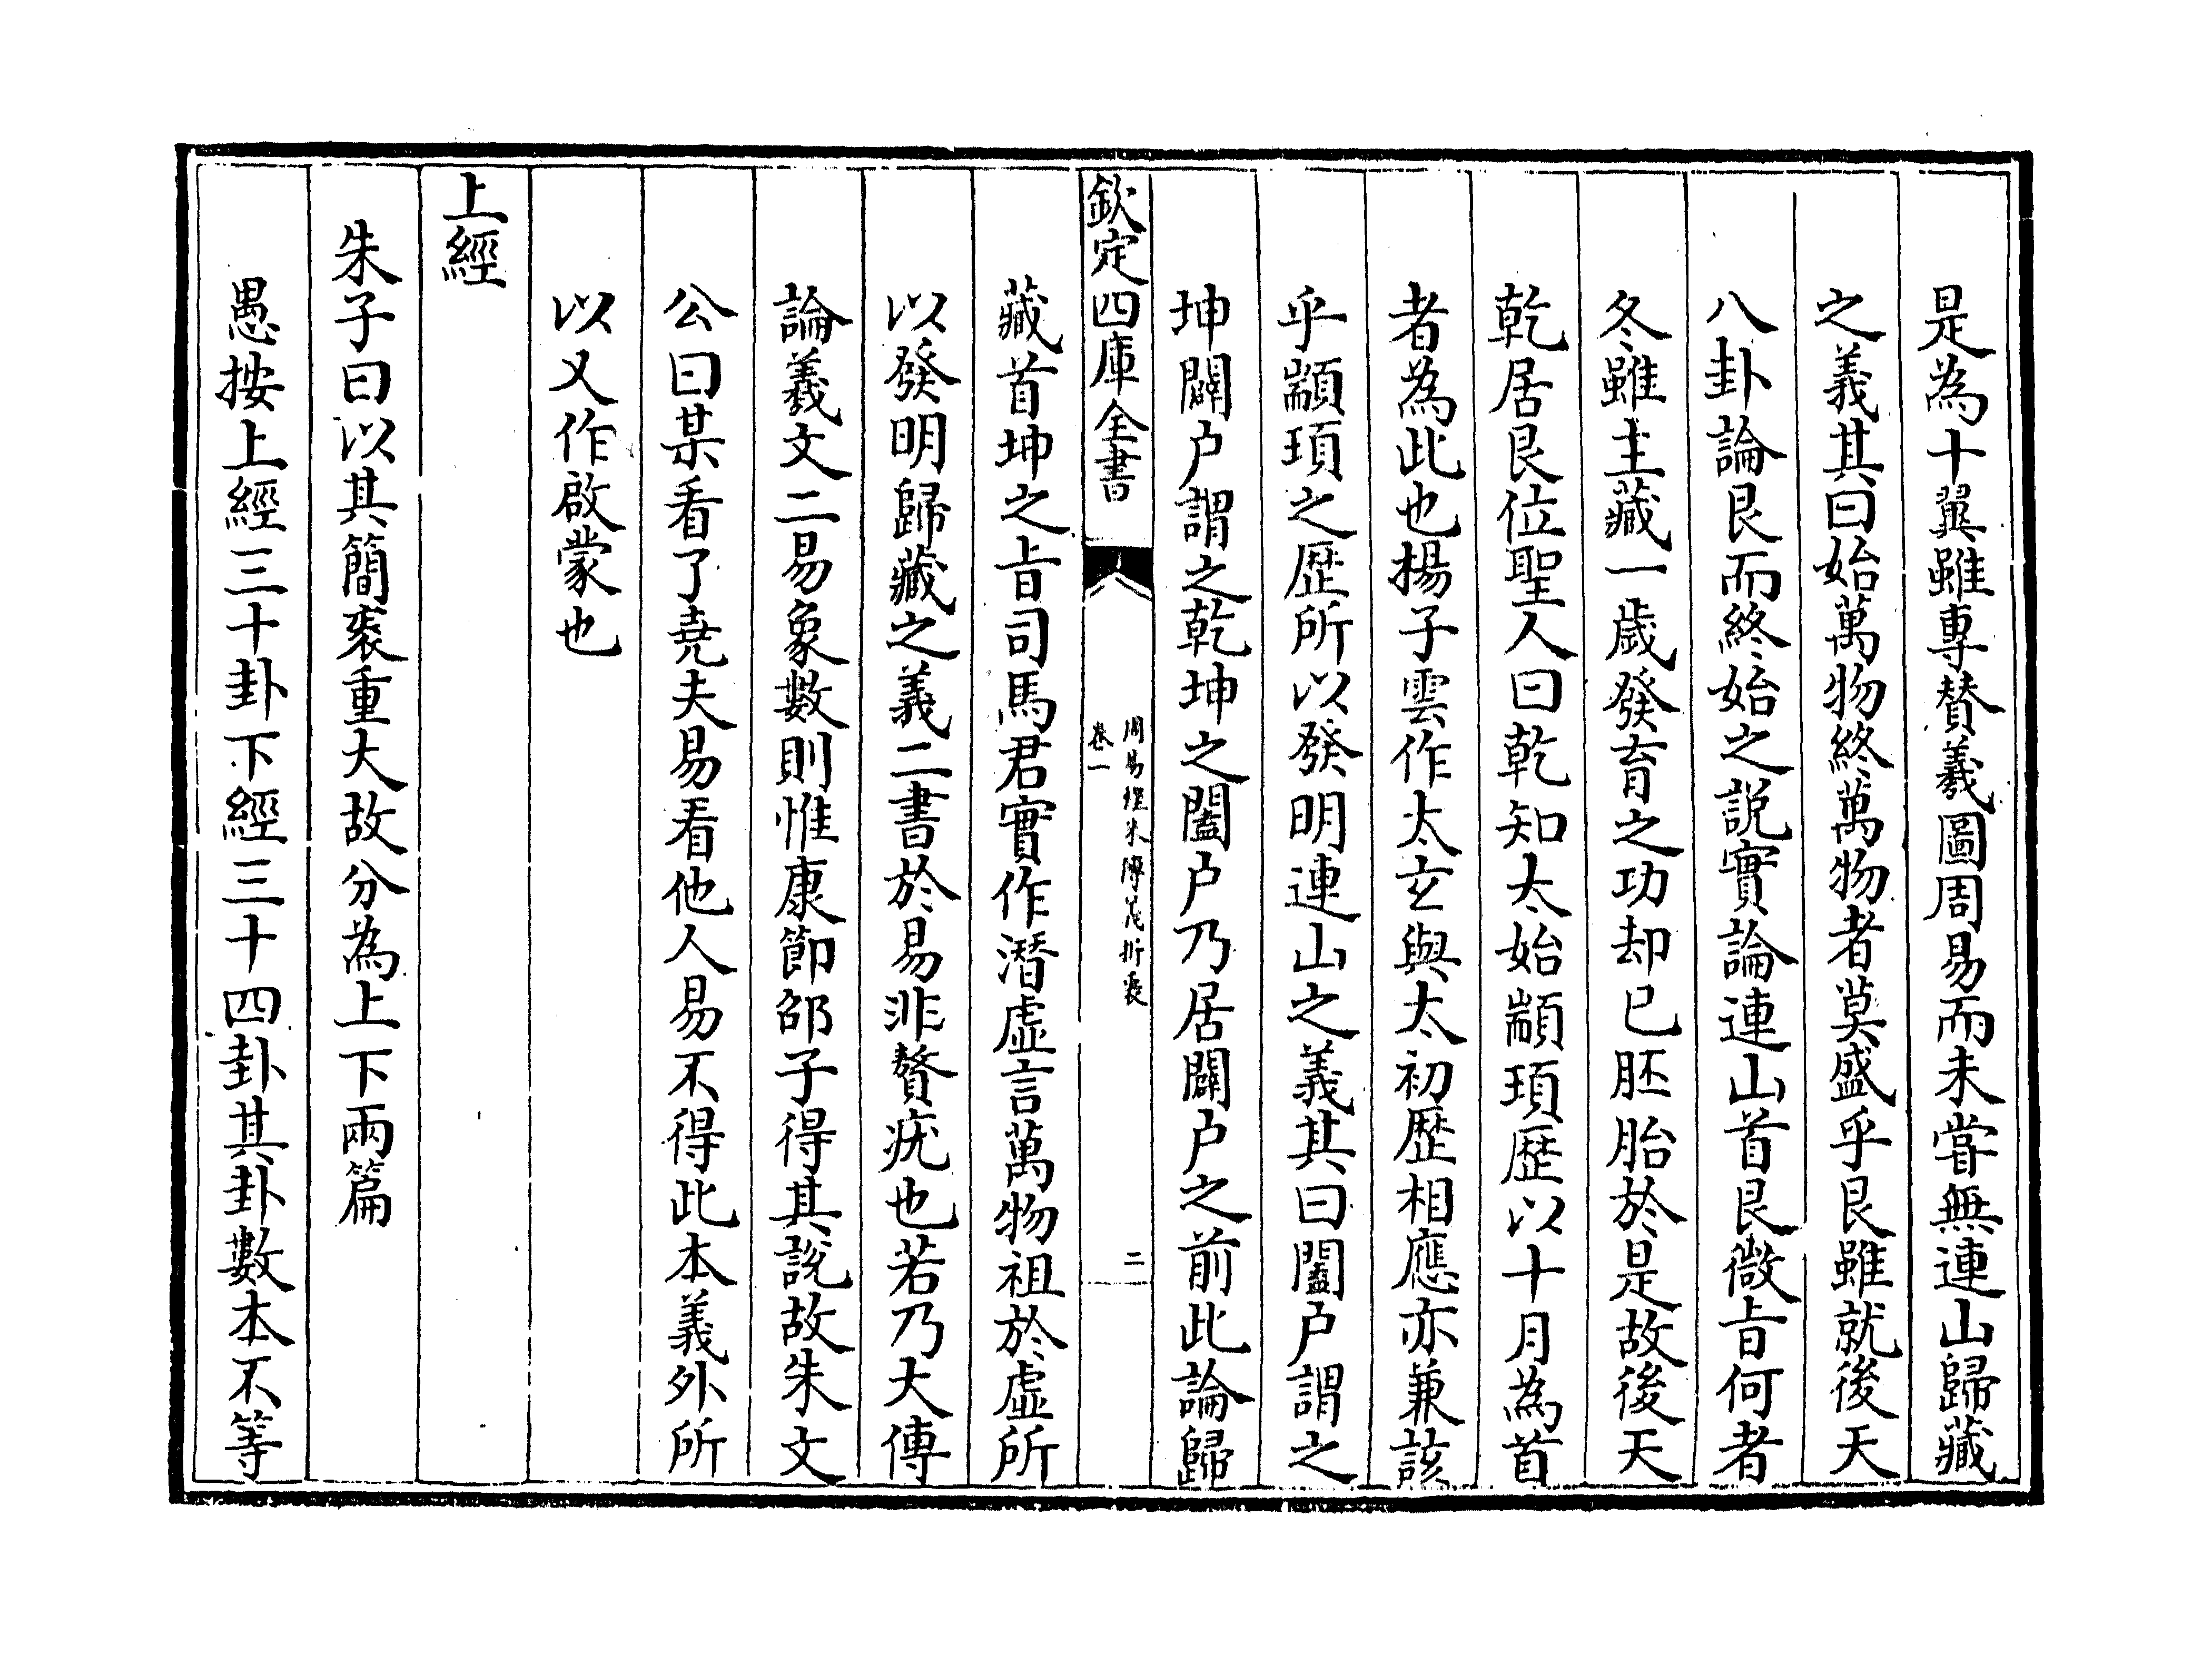 是為十翼雖專賛羲圖周易而未嘗無連山歸藏
之義其曰始萬物終萬物者莫盛乎艮雖就後天
八卦論艮而終始之說實論連山首艮㣲旨何者
冬雖主藏一歲發育之功却已胚胎於是故後天
乾居艮位聖人曰乾知太始顓頊歴以十月為首
者為此也楊子雲作太玄與太初歴相應亦兼該
乎顓頊之歴所以發明連山之義其曰闔户謂之
坤闢户謂之乾坤之闔户乃居闢户之前此論歸
欽定四庫全書
周易經朱傳義折衷
卷一
二
藏首坤之旨司馬君實作潛虛言萬物祖於虛所
以發明歸藏之義二書於易非贅疣也若乃大傳
論羲文二易象數則惟康節邵子得其說故朱文
公曰某看了堯夫易看他人易不得此本義外所
以又作啟蒙也
上經
朱子曰以其簡袠重大故分為上下兩篇
愚按上經三十卦下經三十四卦其卦數本不等